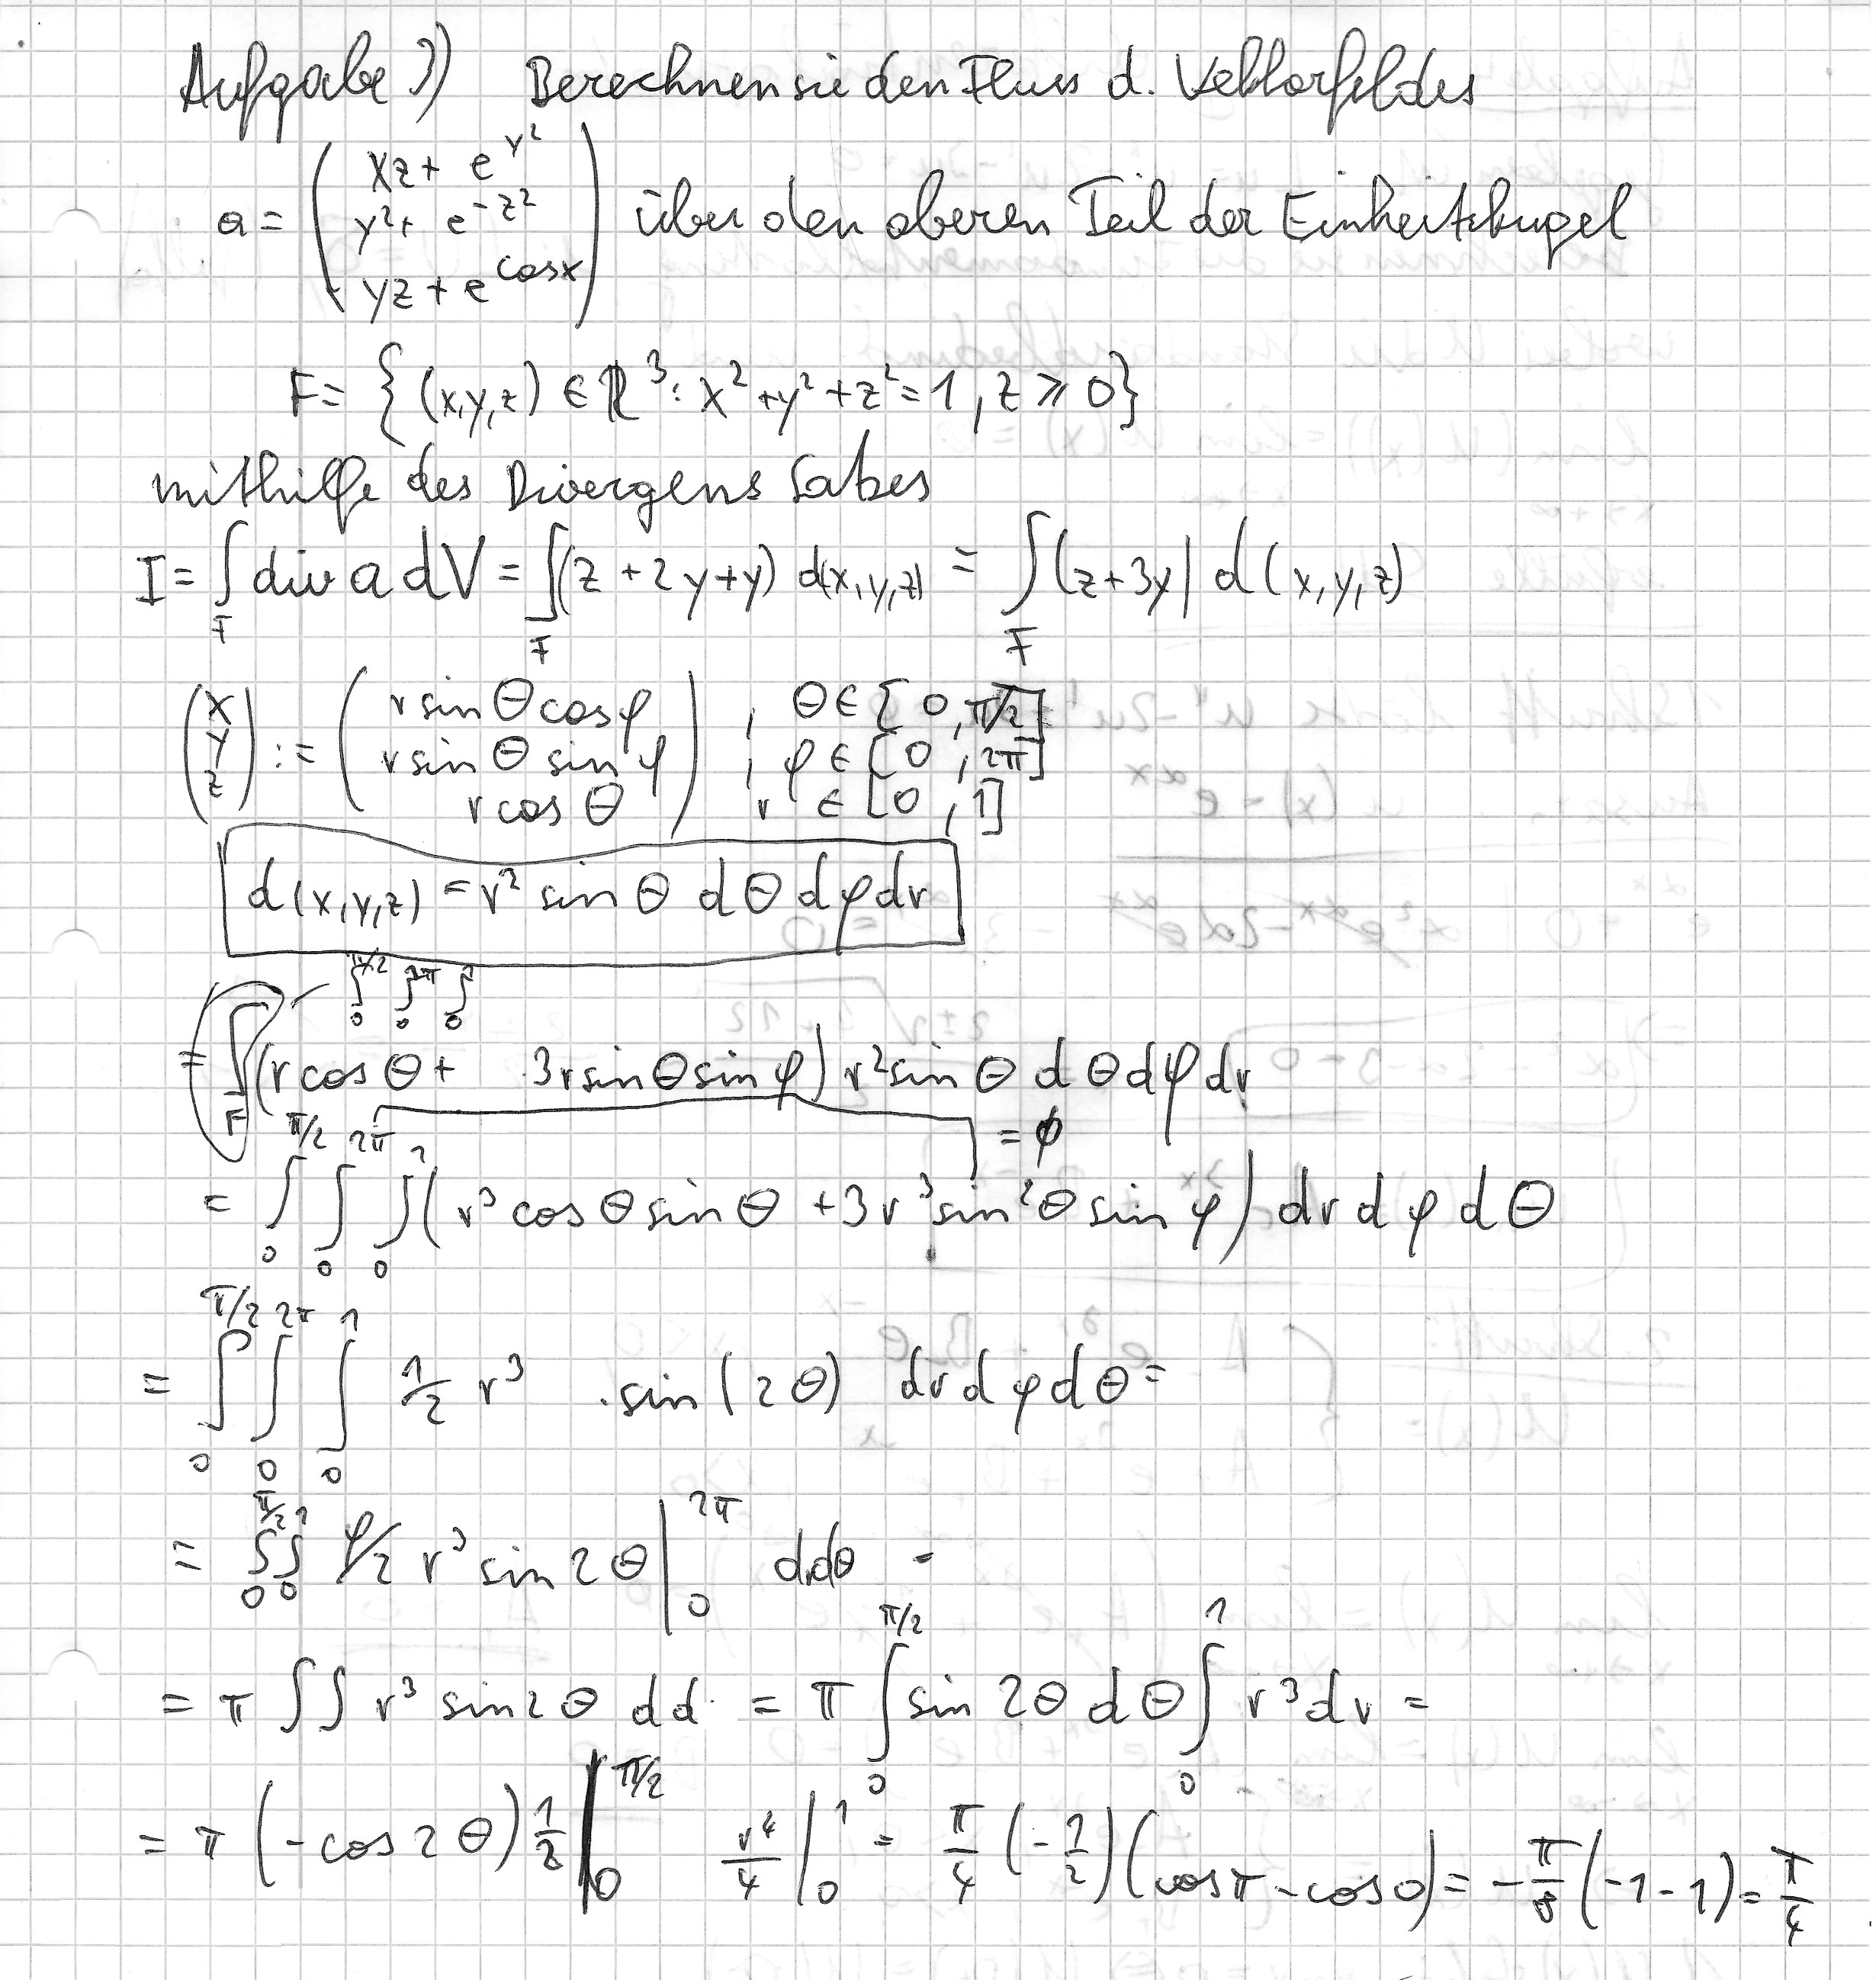 Aufgabe 3) Berechnen sie den Fluss d. Vektorfeldes
a = ( xz + e^{y^2}
y^2 + e^{-z^2} über den oberen Teil der Einheitskugel
yz + e^{cos x} )
F = { (x,y,z) ∈ ℝ^3 : x^2 + y^2 + z^2 = 1, z ⩾ 0 }
mithilfe des Divergens Satzes
I = ∫_F div a dV = ∫_F (z + 2y + y) d(x,y,z) = ∫_F (z + 3y) d(x,y,z)
(x y z) := ( r sin θ cos φ , θ ∈ [0, π/2]
r sin θ sin φ , φ ∈ [0, 2π]
r cos θ ) r ∈ [0, 1]
d(x,y,z) = r^2 sin θ dθ dφ dr
∫_0^{π/2} ∫_0^{2π} ∫_0^1
= ∫_F (r cos θ + 3r sin θ sin φ) r^2 sin θ dθ dφ dr
= 0
= ∫_0^{π/2} ∫_0^{2π} ∫_0^1 (r^3 cos θ sin θ + 3 r^3 sin^2 θ sin φ) dr dφ dθ
= ∫_0^{π/2} ∫_0^{2π} ∫_0^1 1/2 r^3 · sin(2θ) dr dφ dθ =
= ∫_0^{π/2} ∫_0^1 φ/2 r^3 sin 2θ |_0^{2π} d dθ =
= π ∫∫ r^3 sin 2θ d d = π ∫_0^{π/2} sin 2θ dθ ∫_0^1 r^3 dr =
= π (-cos 2θ) 1/2 |_0^{π/2} r^4/4 |_0^1 = π/4 (-1/2)(cos π - cos 0) = -π/8 (-1-1) = π/4